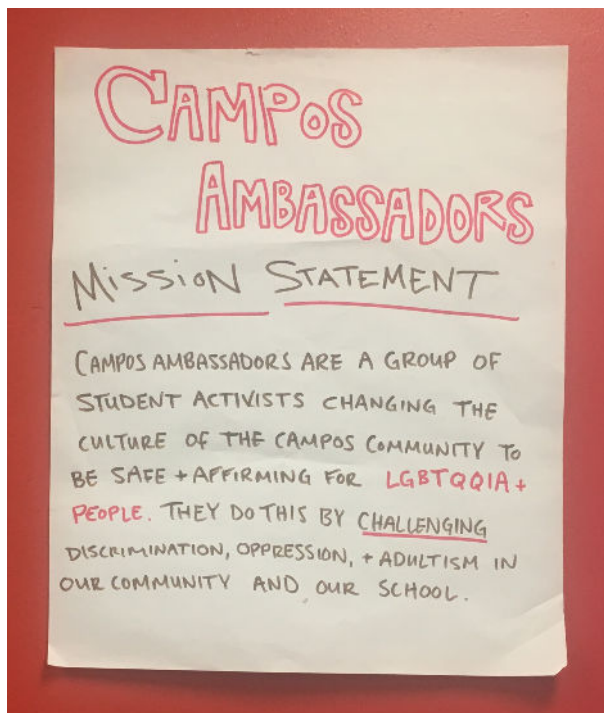 CAMPOS
AMBASSADORS
MISSION STATEMENT
CAMPOS AMBASSADORS ARE A GROUP OF
STUDENT ACTIVISTS CHANGING THE
CULTURE OF THE CAMPOS COMMUNITY TO
BE SAFE + AFFIRMING FOR LGBTQQIA+
PEOPLE. THEY DO THIS BY CHALLENGING
DISCRIMINATION, OPPRESSION, + ADULTISM IN
OUR COMMUNITY AND OUR SCHOOL.